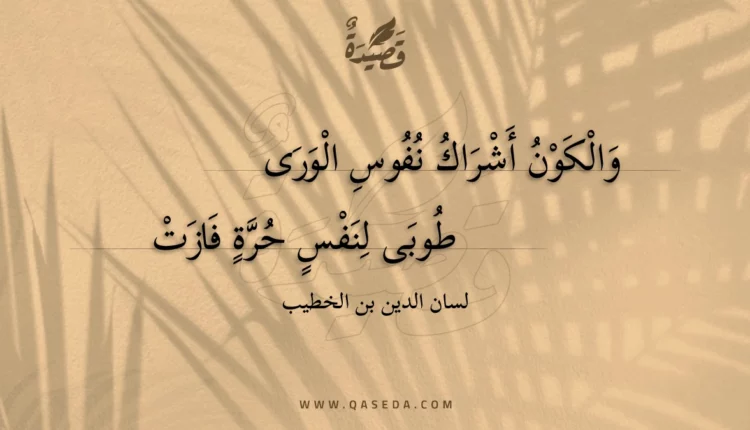 قَصِيدَةٌ
وَالْكَوْنُ أَشْرَاكُ نُفُوسِ الْوَرَى
طُوبَى لِنَفْسٍ حُرَّةٍ فَازَتْ
لسان الدين بن الخطيب
WWW.QASEDA.COM